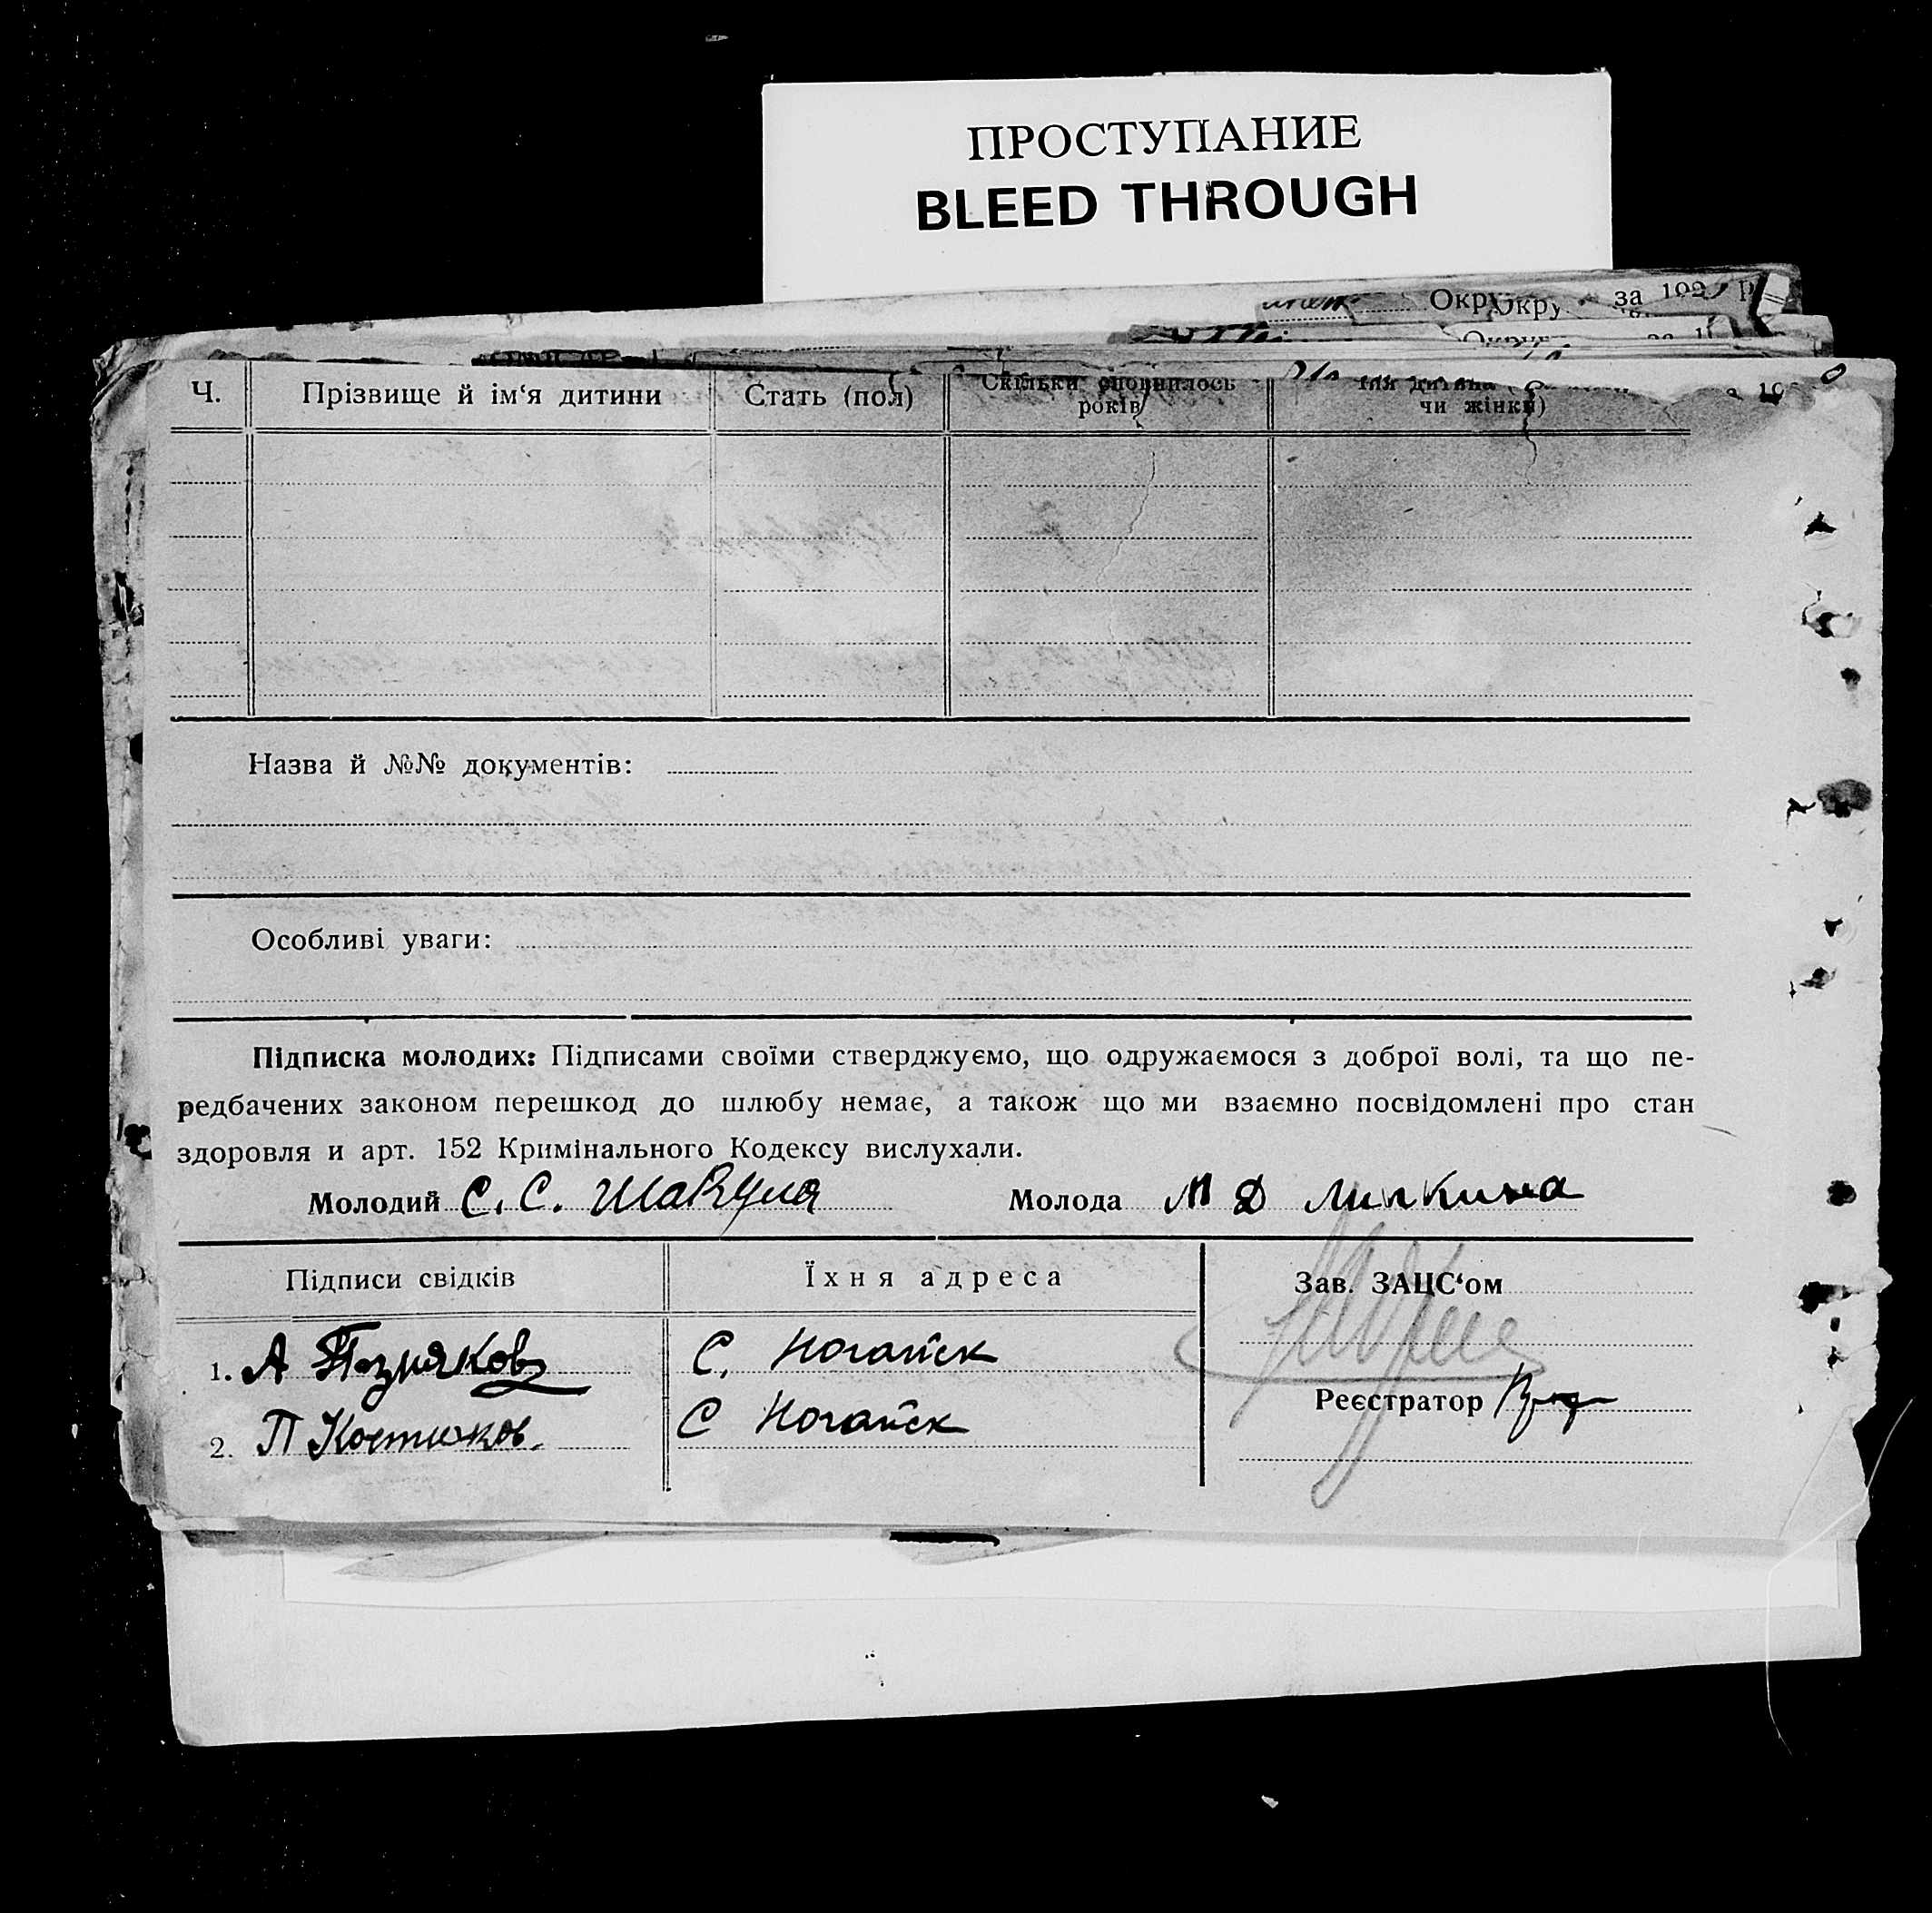 ПРОСТУПАНИЕ
BLEED THROUGH
Округ за 192 р
Ч. Прізвище й ім‘я дитини Стать (пол) Скільки сповнилось років чия дитина чи жінки)
Назва й №№ документів:
Особливі уваги:
Підписка молодих: Підписами своїми стверджуємо, що одружаємося з доброї волі, та що пе-
редбачених законом перешкод до шлюбу немає, а також що ми взаємно посвідомлені про стан
здоровля и арт. 152 Кримінального Кодексу вислухали.
Молодий С. С. Шакуля Молода М Д Липкина
Підписи свідків Їхня адреса Зав. ЗАЦС‘ом
1. А Позняков С. Ногайск
Реєстратор
2. П Костюков. С Ногайск